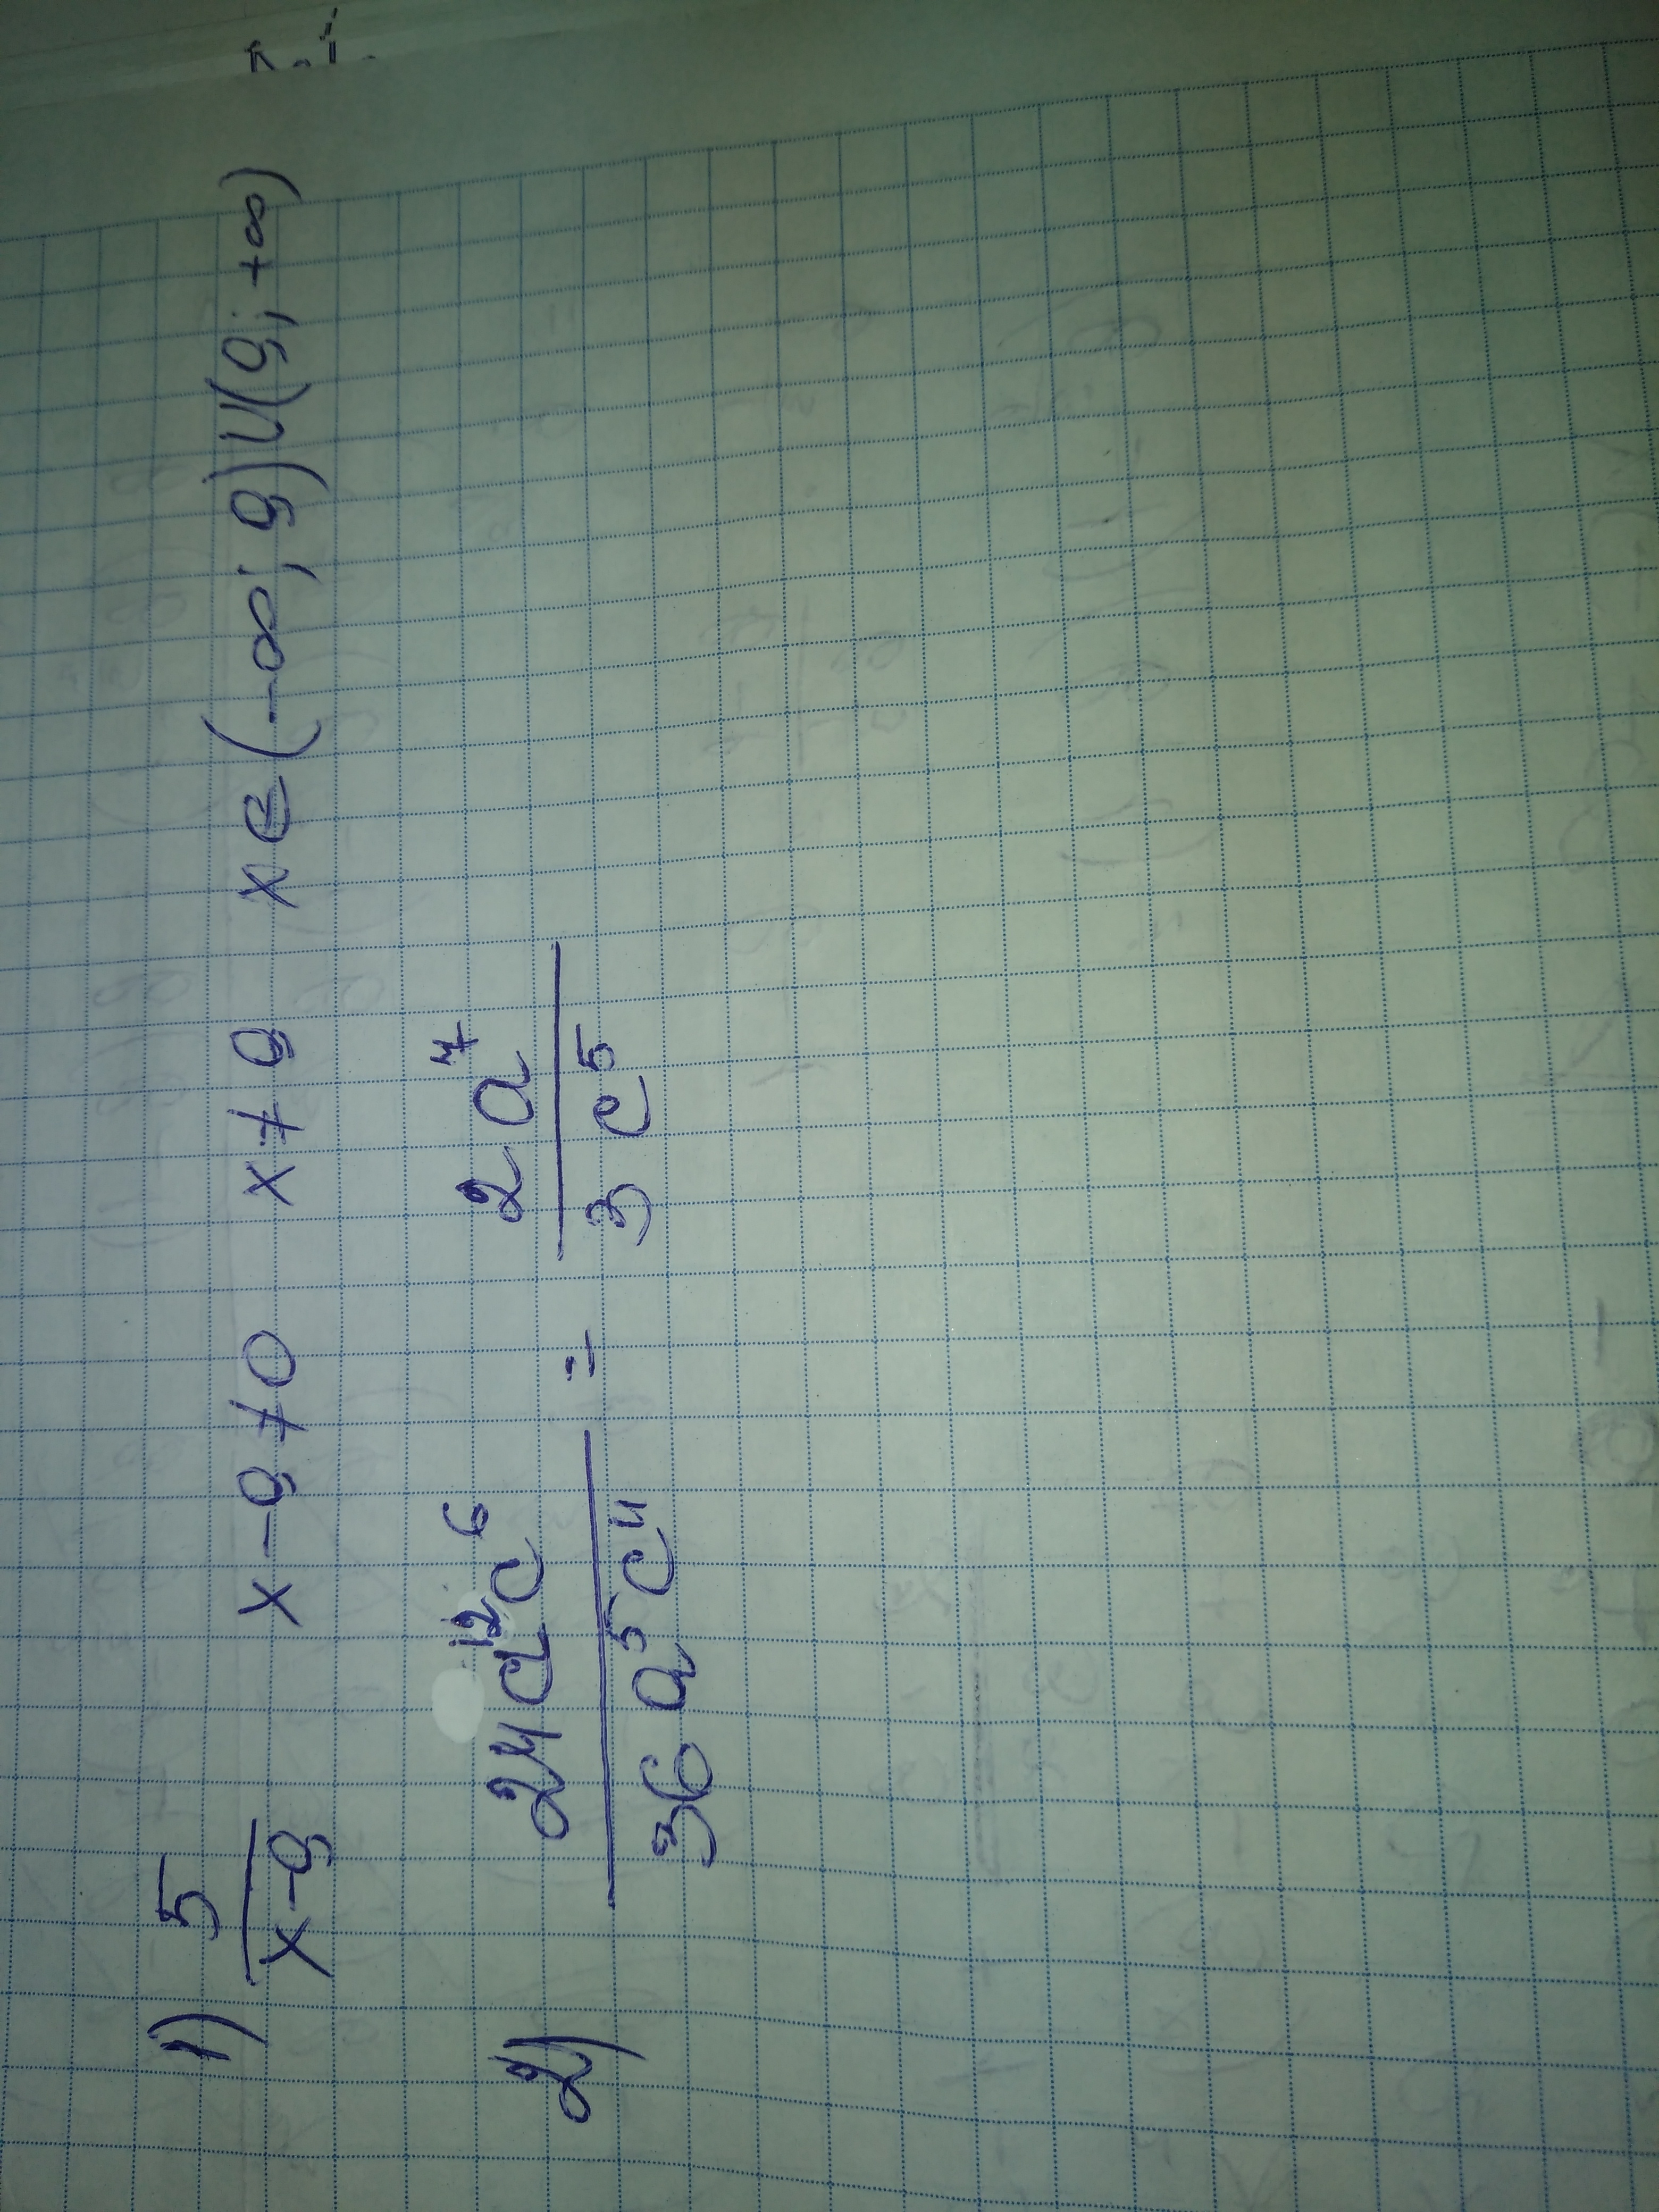 к.і.
1) 5/(x-9) x-9≠0 x≠9 x∈(-∞; 9)∪(9; +∞)
2) 24a¹²c⁶/36a⁵c¹¹ = 2a⁷/3c⁵